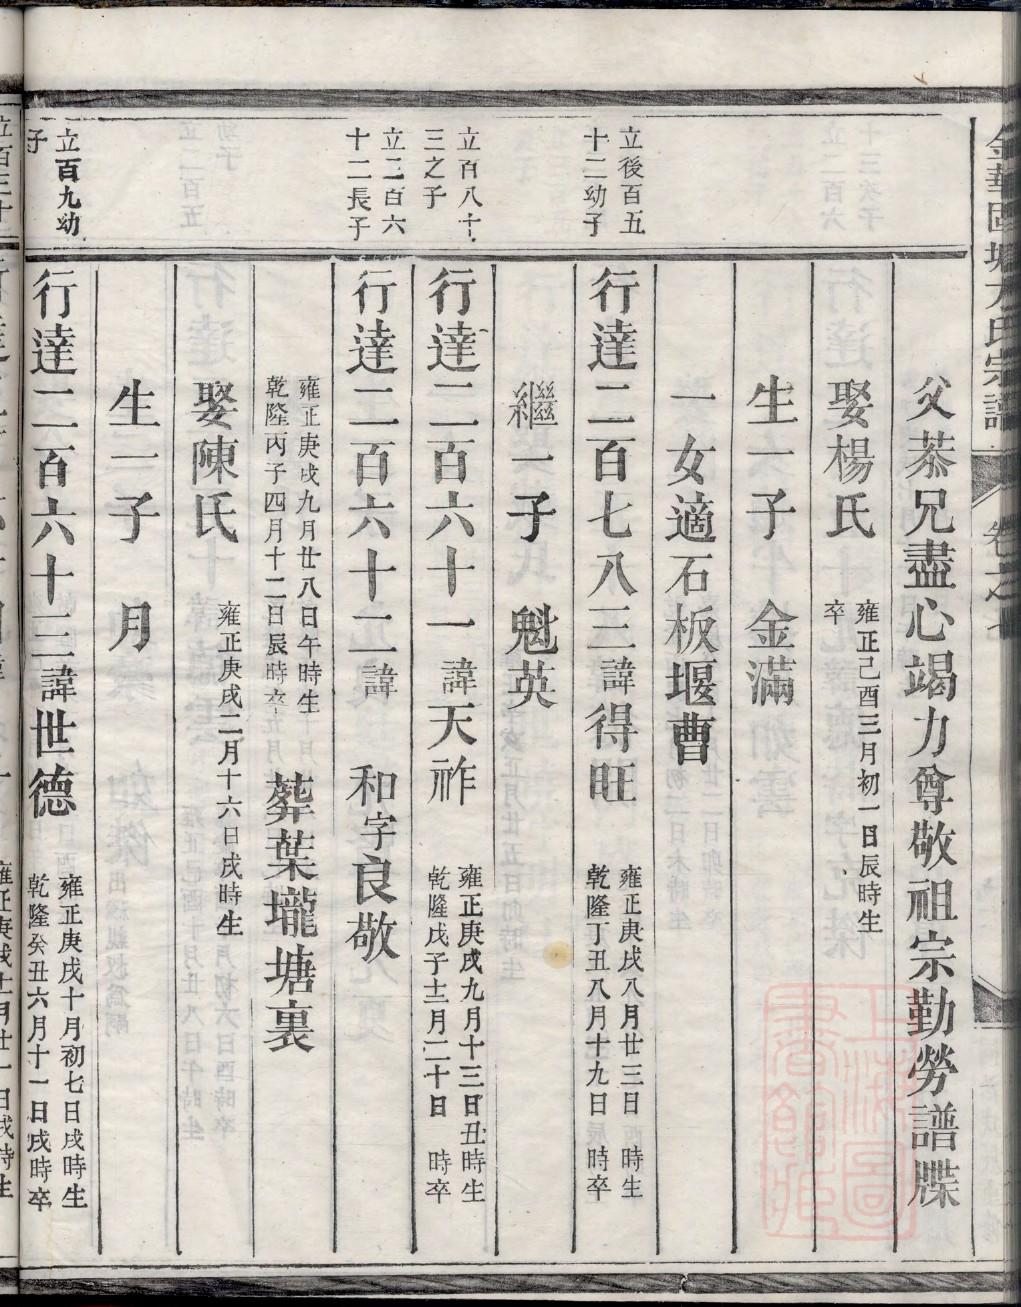 父恭兄盡心竭力尊敬祖宗勤勞譜牒
娶楊氏
雍正己酉三月初一日辰時生
卒
生一子 金滿
一女適石板堰曹
立後百五
十二幼子
行達二百七八三諱得旺
雍正庚戌八月廿三日 時生
乾隆丁丑八月十九日 時卒
繼一子 魁英
立百八十
三之子
行達二百六十一諱天祚
雍正庚戌九月十三日丑時生
乾隆戊子十二月二十日 時卒
立二百六
十二長子
行達二百六十二諱 和字良敬
雍正庚戌九月廿八日午時生
乾隆丙子四月十二日辰時卒
葬葉壠塘裏
娶陳氏
雍正庚戌二月十六日戌時生
生一子 月
立百九幼
子
行達二百六十三諱世德
雍正庚戌十月初七日戌時生
乾隆癸丑六月十一日戌時卒